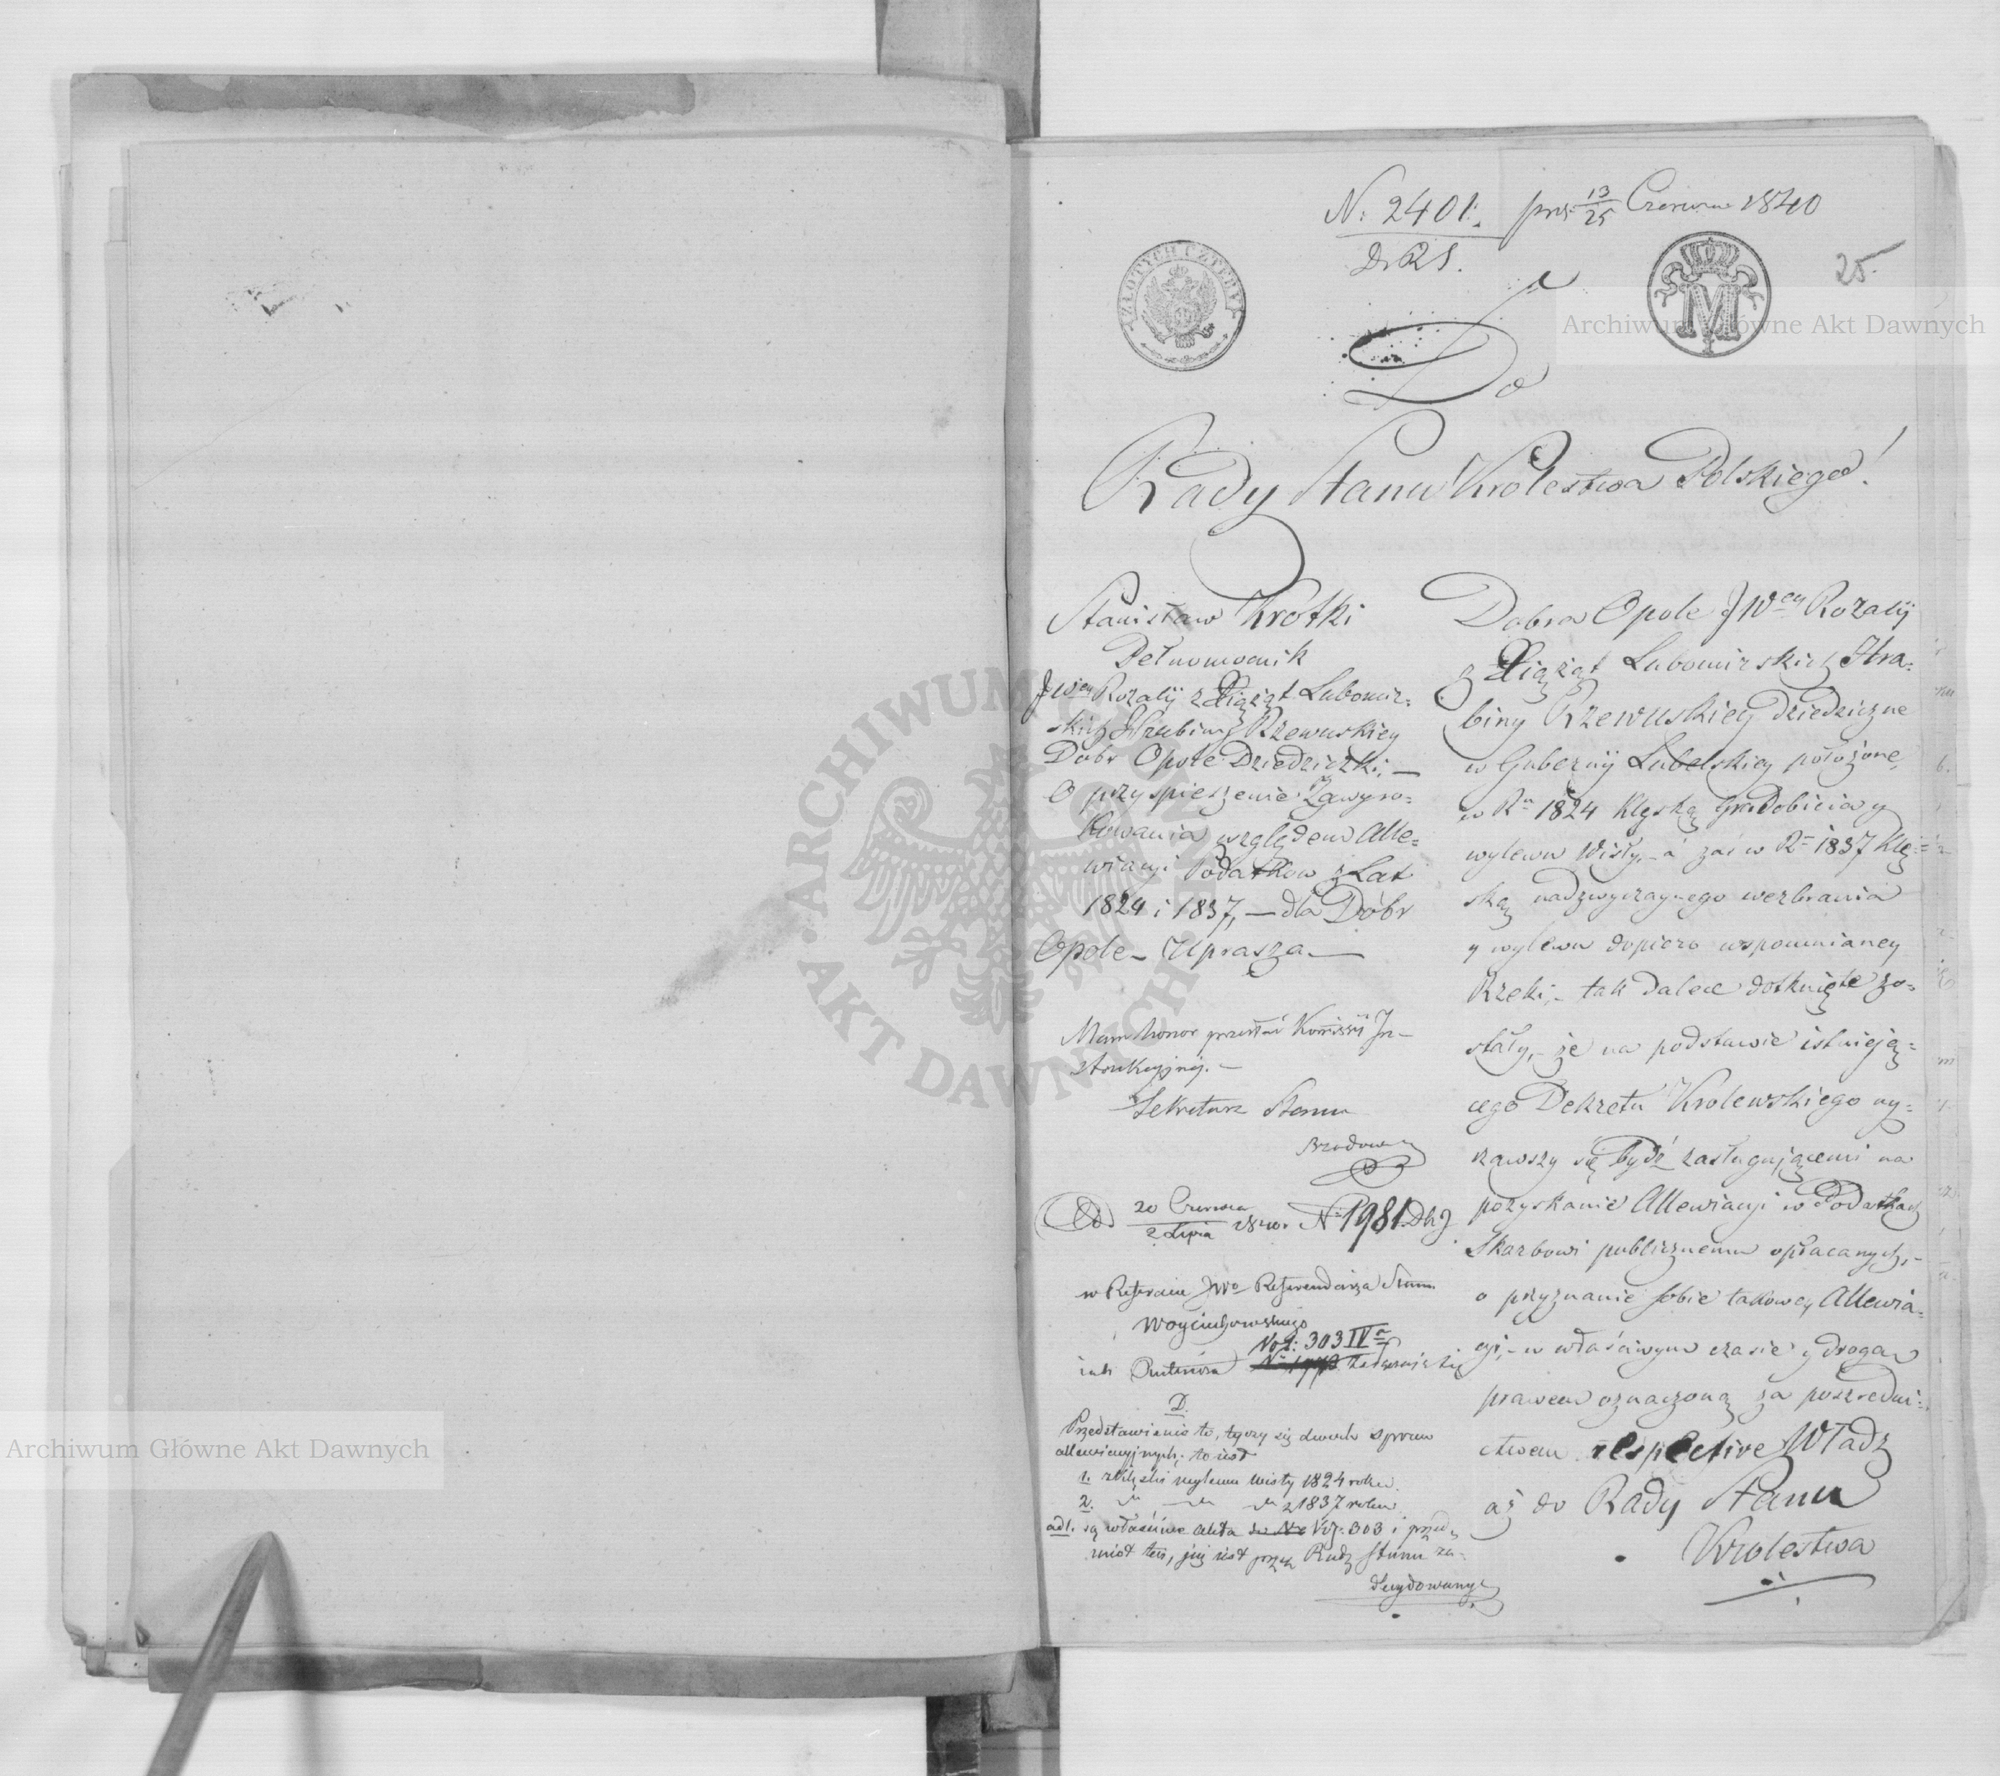 N: 2401. prz: 13/25 Czerwca 1840
D. R S.
25.
ZŁOTYCH CZTERY
M
Do
Rady Stanu Krolestwa Polskiego!
Stanisław Krotki
Pełnomocnik
JWey Rozalij z Xiążąt Lubomir=
skich Hrabiny Rzewuskiey
Dobr Opole Dziedziczki, —
O przyspieszenie Zawyro=
kowania względem Alle=
wiacyi Podatkow z Lat
1824 i 1837, — dla Dóbr
Opole — Uprasza. —
Mam honor przesłać Kommissyi In-
strukcyjnej. —
Sekretarz Stanu
Brzozowski
20 Czerwca
2 Lipca 1840. N: 1981. D
w Referacie JWo Referendarza Stanu
Woyciechowskiego
Vol: 303 IV
iak
D.
Przedstawienie to, tyczy się dwoch spraw
allewiacyjnych, to iest
1. z klęski wylewu Wisły 1824 roku.
2. z 1837 roku
ad 1. są właściwe akta Vol: 303 i przed=
miot ten, już iest przez Radę Stanu za=
decydowany
Dobra Opole JWey Rozalij
z Xiążąt Lubomirskich Hra=
biny Rzewuskiey dziedziczne
w Gubernij Lubelskiey położone,
w Rn 1824 Klęską gradobicia y
wylewu Wisły, — á zaś w R= 1837 Klę=
ską nadzwyczaynego wezbrania
y wylewu dopiero wspomnianey
Rzeki, — tak dalece dotknięte zo=
stały, — że na podstawie istnieją=
cego Dekretu Krolewskiego wy=
kazawszy się bydź zasługującemi na
pozyskanie Allewiacyi w Podatkach
Skarbowi publicznemu opłacanych, —
o przyznanie sobie takowey Allewia=
cyi, — w właściwym czasie y drogą
prawem oznaczoną za posrednic=
ctwem respective Władz
aż do Rady Stanu
Krolestwa
Archiwum Główne Akt Dawnych
Archiwum Główne Akt Dawnych
ARCHIWUM GŁÓWNE AKT DAWNYCH